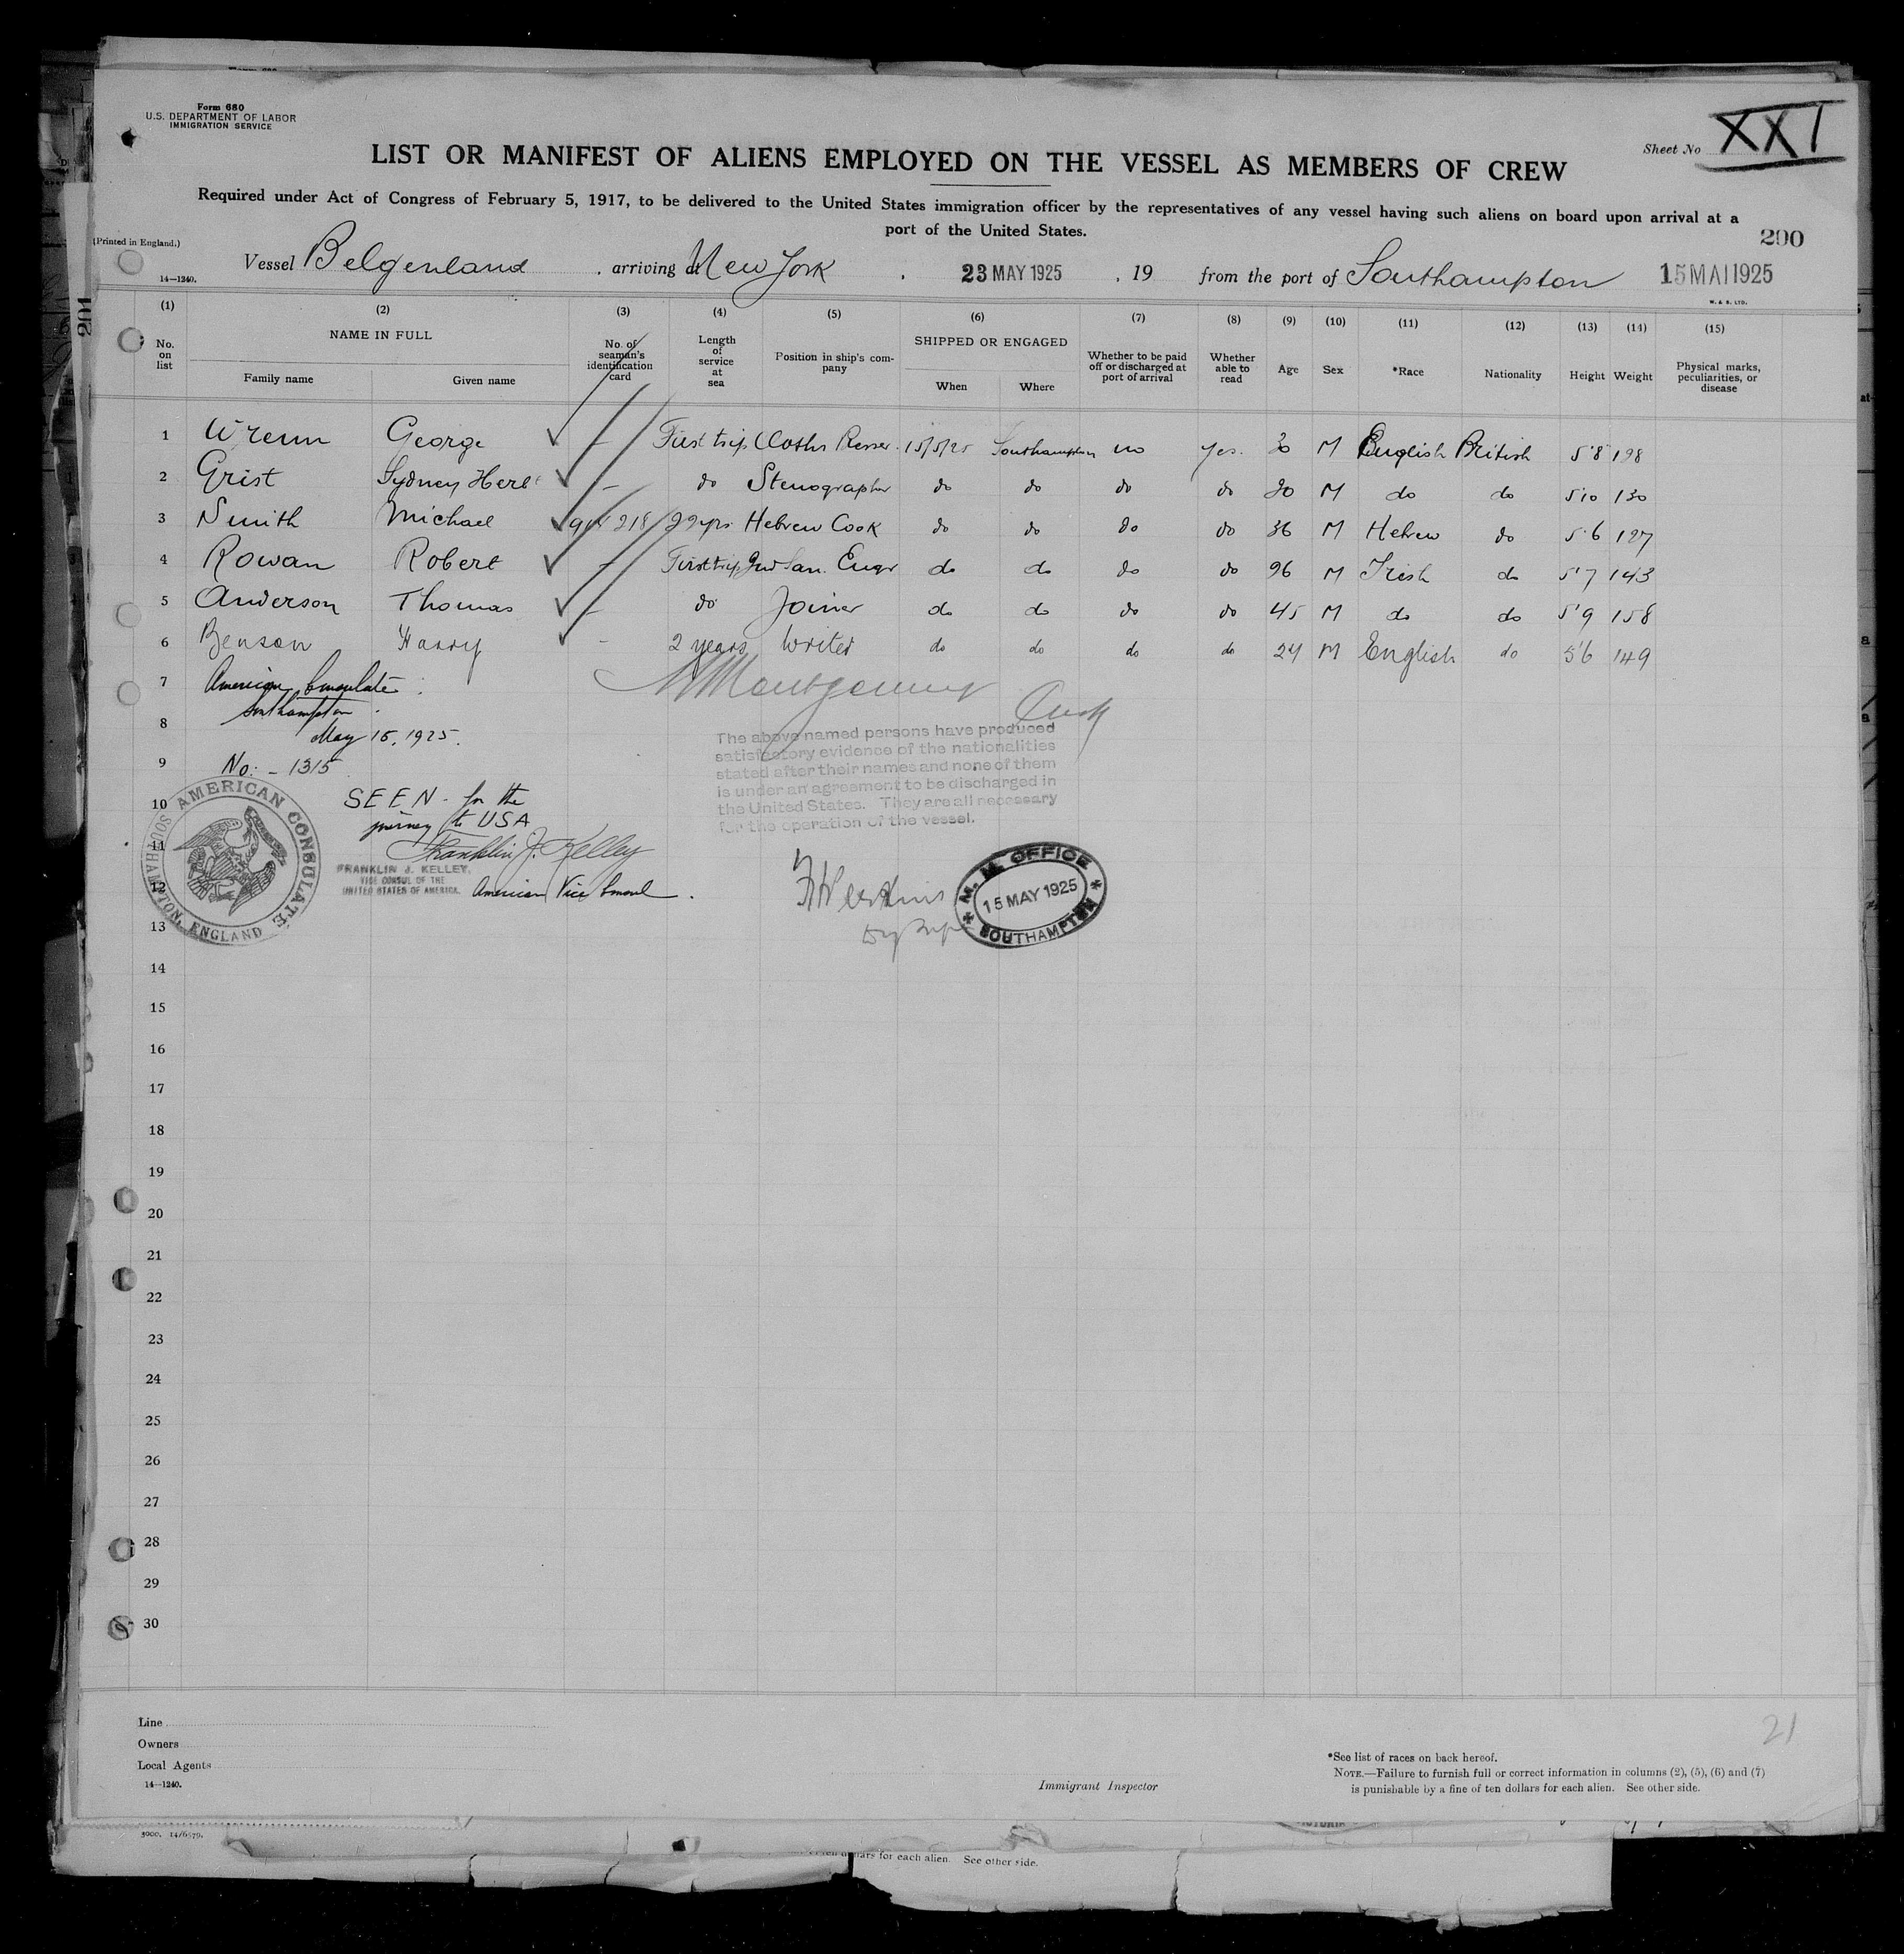 Form 680
U.S. DEPARTMENT OF LABOR
IMMIGRATION SERVICE
Sheet No XXI
LIST OR MANIFEST OF ALIENS EMPLOYED ON THE VESSEL AS MEMBERS OF CREW
Required under Act of Congress of February 5, 1917, to be delivered to the United States immigration officer by the representatives of any vessel having such aliens on board upon arrival at a
port of the United States.
200
(Printed in England.)
14—1240.
Vessel Belgenland , arriving at New York , 23 MAY 1925 , 19 from the port of Southampton 15 MAI 1925
W. & S. LTD.
201
(1) (2) (3) (4) (5) (6) (7) (8) (9) (10) (11) (12) (13) (14) (15)
No. on list NAME IN FULL Family name Given name No. of seaman's identification card Length of service at sea Position in ship's company SHIPPED OR ENGAGED When Where Whether to be paid off or discharged at port of arrival Whether able to read Age Sex *Race Nationality Height Weight Physical marks, peculiarities, or disease
1 Wrenn George – First trip 15/5/25 Southampton no yes. M English British 5'8
2 Grist Sydney – do Stenographer do do do do M do do 5'10 130
3 Smith Michael Hebrew Cook do do do do 36 M Hebrew do 5'6 127
4 Rowan Robert – First trip Engr do do do do M Irish do 5'7 143
5 Anderson Thomas – do Joiner do do do do 45 M do do 5'9 158
6 Benson Harry – 2 years Writer do do do do 24 M English do 5'6 149
7 American Consulate
Southampton
8 May 15, 1925.
9 No: – 1315
Montgomery
The above-named persons have produced
satisfactory evidence of the nationalities
stated after their names and none of them
is under an agreement to be discharged in
the United States. They are all necessary
for the operation of the vessel.
10 SEEN - for the
journey to USA
11 Franklin J. Kelley
FRANKLIN J. KELLEY,
VICE CONSUL OF THE
UNITED STATES OF AMERICA.
12 American Vice Consul.
AMERICAN CONSULATE
SOUTHAMPTON, ENGLAND
M. M. OFFICE
15 MAY 1925
SOUTHAMPTON
13
14
15
16
17
18
19
20
21
22
23
24
25
26
27
28
29
30
Line
Owners
Local Agents
14—1240.
Immigrant Inspector
21
*See list of races on back hereof.
NOTE.—Failure to furnish full or correct information in columns (2), (5), (6) and (7)
is punishable by a fine of ten dollars for each alien. See other side.
dollars for each alien. See other side.